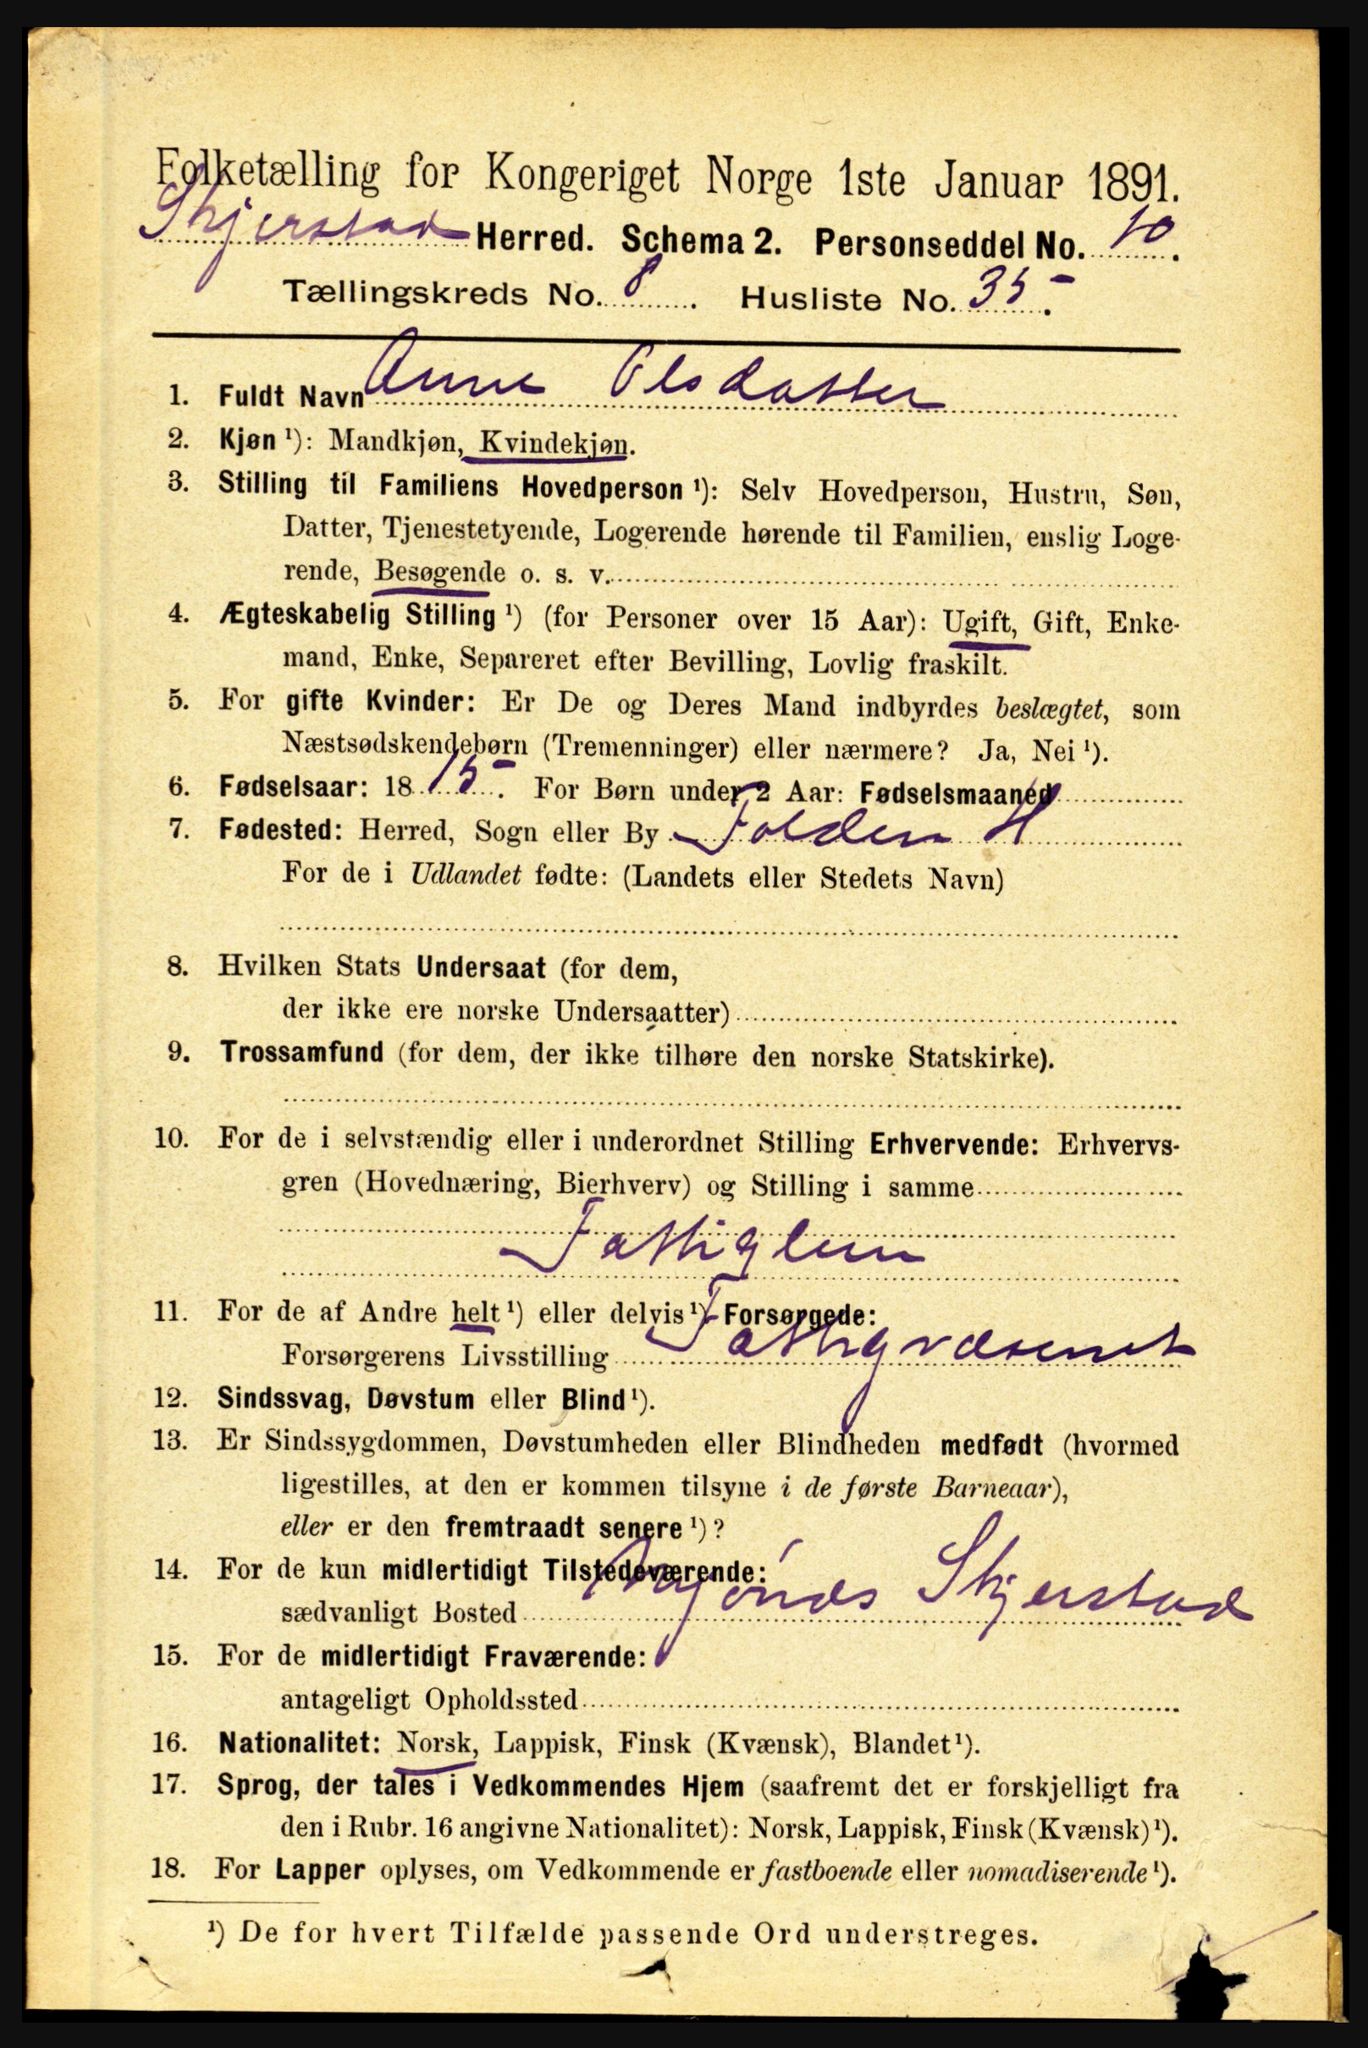 Folketælling for Kongeriget Norge 1ste Januar 1891.
Skjerstad Herred. Schema 2. Personseddel No. 10.
Tællingskreds No. 8. Husliste No. 35.
1. Fuldt Navn Anne Olsdatter
2. Kjøn ¹): Mandkjøn, Kvindekjøn.
3. Stilling til Familiens Hovedperson ¹): Selv Hovedperson, Hustru, Søn,
Datter, Tjenestetyende, Logerende hørende til Familien, enslig Loge-
rende, Besøgende o. s. v.
4. Ægteskabelig Stilling ¹) (for Personer over 15 Aar): Ugift, Gift, Enke-
mand, Enke, Separeret efter Bevilling, Lovlig fraskilt.
5. For gifte Kvinder: Er De og Deres Mand indbyrdes beslægtet, som
Næstsødskendebørn (Tremenninger) eller nærmere? Ja, Nei ¹).
6. Fødselsaar: 1815. For Børn under 2 Aar: Fødselsmaaned
7. Fødested: Herred, Sogn eller By Folden H
For de i Udlandet fødte: (Landets eller Stedets Navn)
8. Hvilken Stats Undersaat (for dem,
der ikke ere norske Undersaatter)
9. Trossamfund (for dem, der ikke tilhøre den norske Statskirke).
10. For de i selvstændig eller i underordnet Stilling Erhvervende: Erhvervs-
gren (Hovednæring, Bierhverv) og Stilling i samme
Fattiglem
11. For de af Andre helt ¹) eller delvis ¹) Forsørgede:
Forsørgerens Livsstilling Fattigvæsenet
12. Sindssvag, Døvstum eller Blind ¹).
13. Er Sindssygdommen, Døvstumheden eller Blindheden medfødt (hvormed
ligestilles, at den er kommen tilsyne i de første Barneaar),
eller er den fremtraadt senere ¹)?
14. For de kun midlertidigt Tilstedeværende:
sædvanligt Bosted Skjerstad
15. For de midlertidigt Fraværende:
antageligt Opholdssted
16. Nationalitet: Norsk, Lappisk, Finsk (Kvænsk), Blandet ¹).
17. Sprog, der tales i Vedkommendes Hjem (saafremt det er forskjelligt fra
den i Rubr. 16 angivne Nationalitet): Norsk, Lappisk, Finsk (Kvænsk) ¹).
18. For Lapper oplyses, om Vedkommende er fastboende eller nomadiserende ¹).
¹) De for hvert Tilfælde passende Ord understreges.